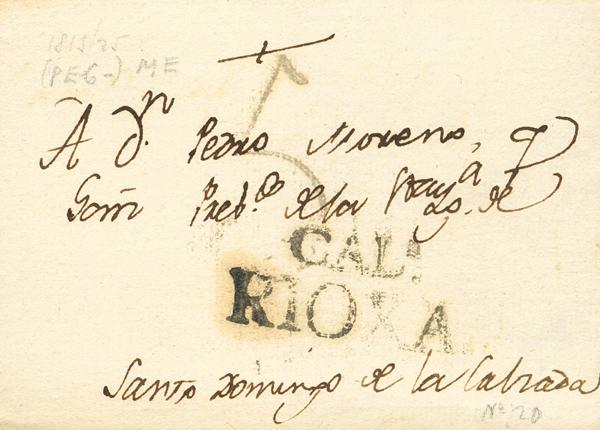 1815/25
(PE6-) ME
5
A Dn. Pedro Moreno, q
Prebdo. de la Sta. de
CALA.
RIOXA
Santo Domingo de la Calzada
Nº 20